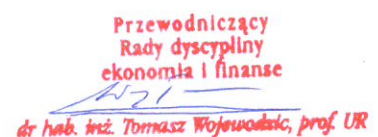 Przewodniczący
Rady dyscypliny
ekonomia i finanse
dr hab. inż. Tomasz Wojewodzic, prof. UR